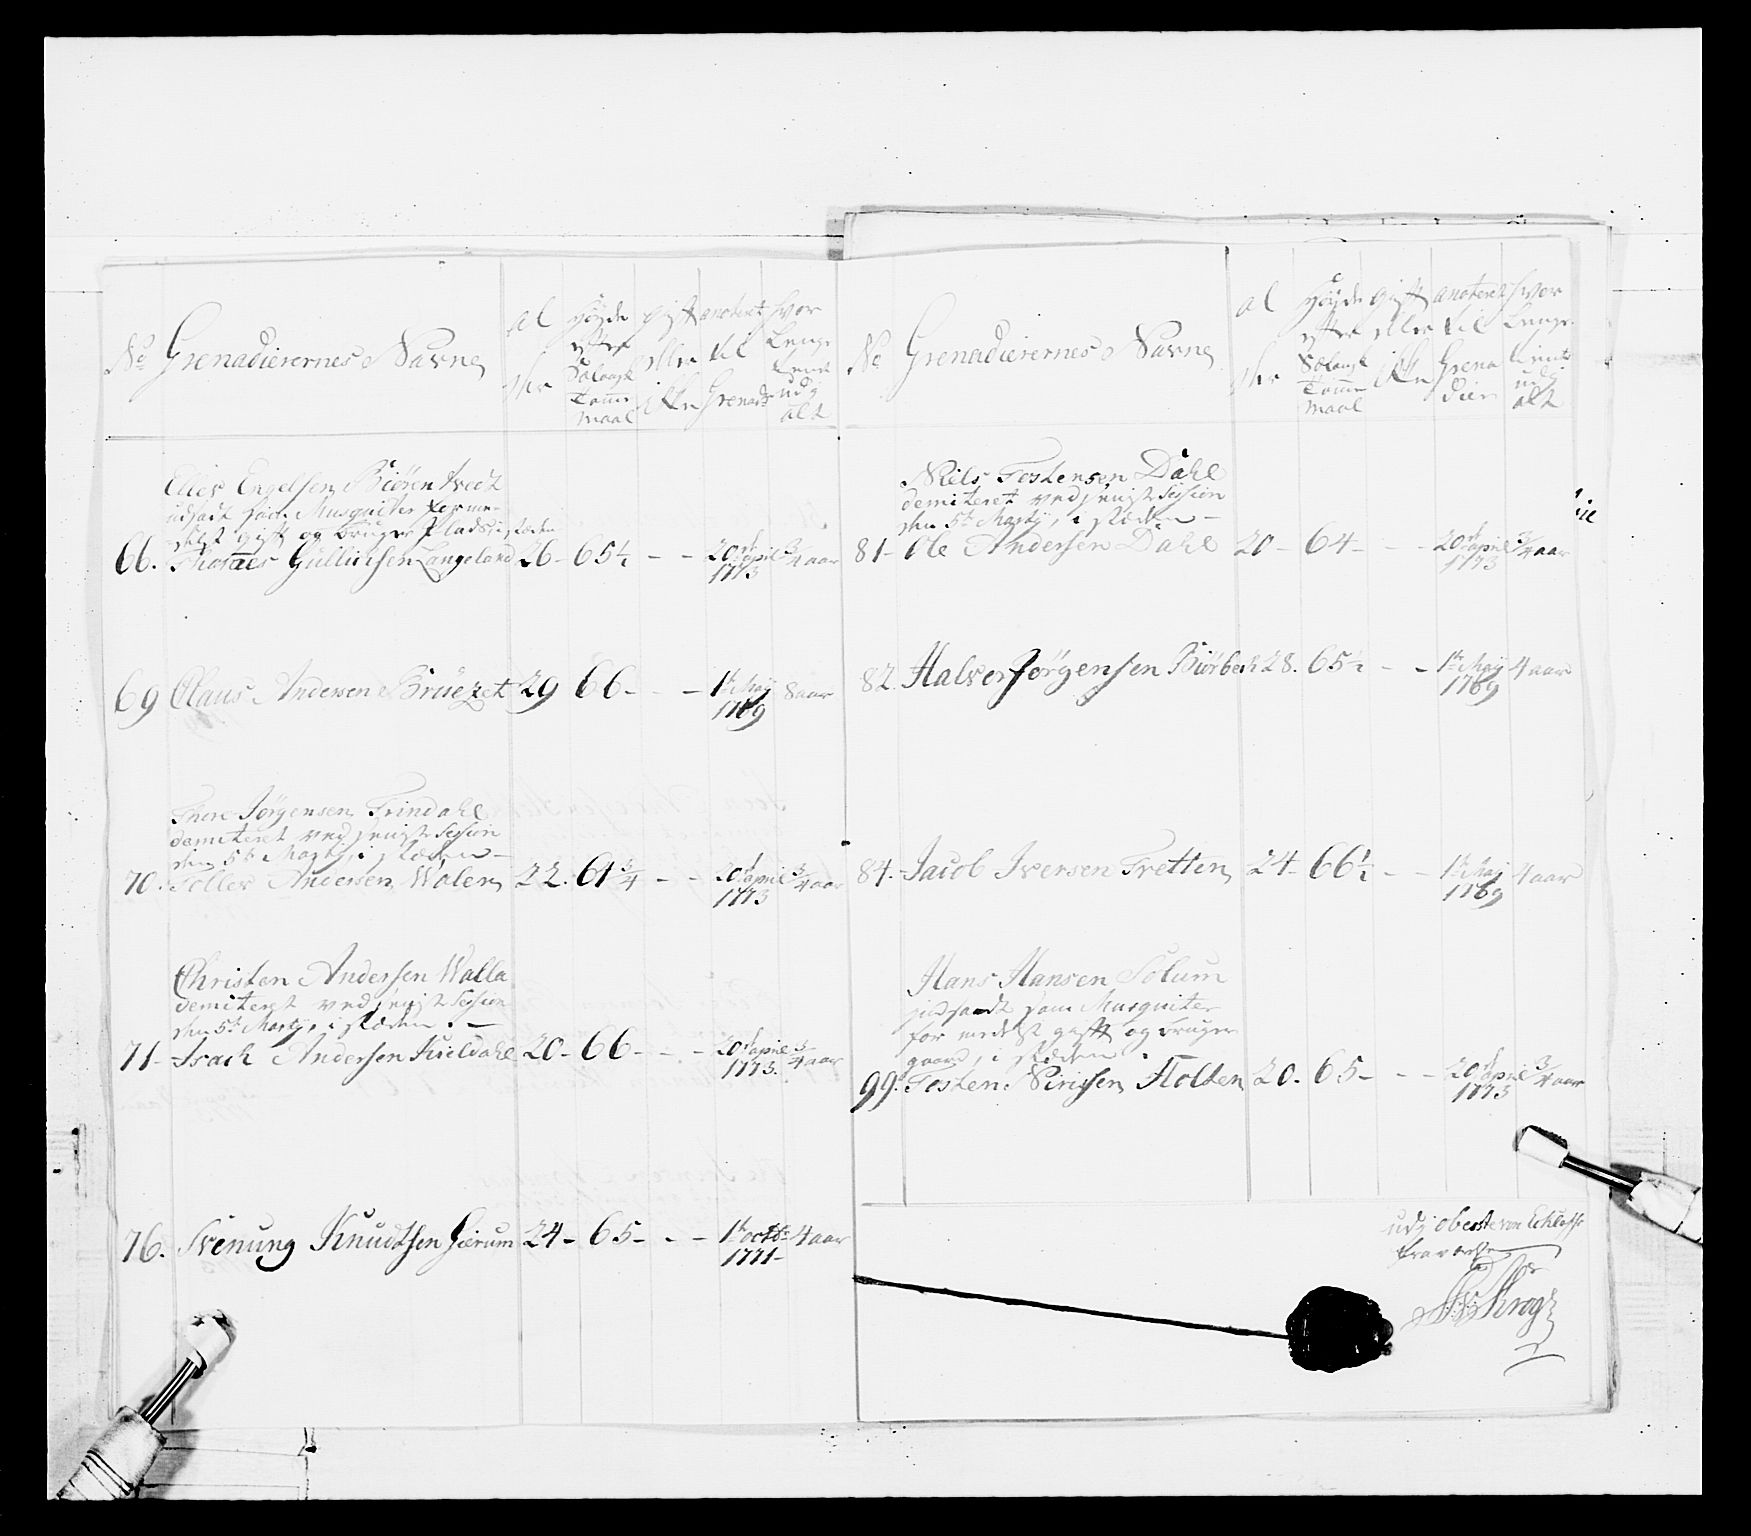 No
Grenadierernes Navne
al
der
Høyde
efter
Sælansk
Tomme
maal
gift
eller
ikke
anoteret
til
Grenadr
hvor
Lenge
tient
udj
alt
Eliev Engelsen Biørentvedt
udsadt som Musquiter forme-
delst gift og bruger Plads, i stæden
66. Thomes Gullichsen Langeland 26 - 65½ - - 20d april 1773 ¾ aar
69 Claus Andersen Brüezet 29 66 - - - 1te Maij 1769 8 aar
Thore Jørgensen Trindahl
demiteret ved sengst Session
den 5te Martij, i stæden -
70. Tollev Andersen Walen 22. 61¾ - - 20d april 1773 ¾ aar
Christen Andersen Walla
demiteret ved sengst Session
den 5te Martij, i stæden. -
71 - Isach Andersen Kieldahl 20 - 66 - - - 20d april 1773. ¾ aar
76. Svenung Knudtsen Gierum 24 - 65 - - - 1te octbr 1771 - 4 aar
No
Grenadierernes Navne
al
der
Høyde
efter
Sælansk
Tomme
maal
gift
eller
ikke
anoteret
til
Grena
dier
hvor
Lenge
tient
udj
alt
Niels Tostensen Dahl
demiteret ved sengst Session
den 5te Martij, i stæden -
81 - Ole Andersen Dahl 20 - 64 - - - 20d april 1773 ¾ aar
82. Halvor Jørgensen Biørbech 28. 65½ - - 1te Maij 1769 4 aar
84. Jacob Iversen Tretten 24 - 66½ - - 1te Maij 1769 4 aar
Hans Hansen Solum
udsadt som Musquiter
formedelst gift og bruger
gaard, i stæden
99. Tosten Nirissen Holten 20. 65 - - - 20d april 1773 ¾ aar
udj oberste von
fraværelse
Krog